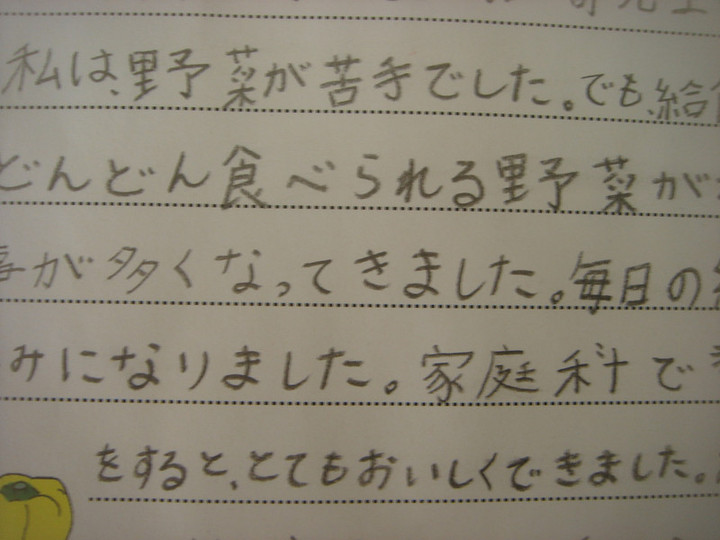 私は、野菜が苦手でした。でも、給
どんどん食べられる野菜が
が多くなってきました。毎日の
みになりました。家庭科で
をすると、とてもおいしくできました。